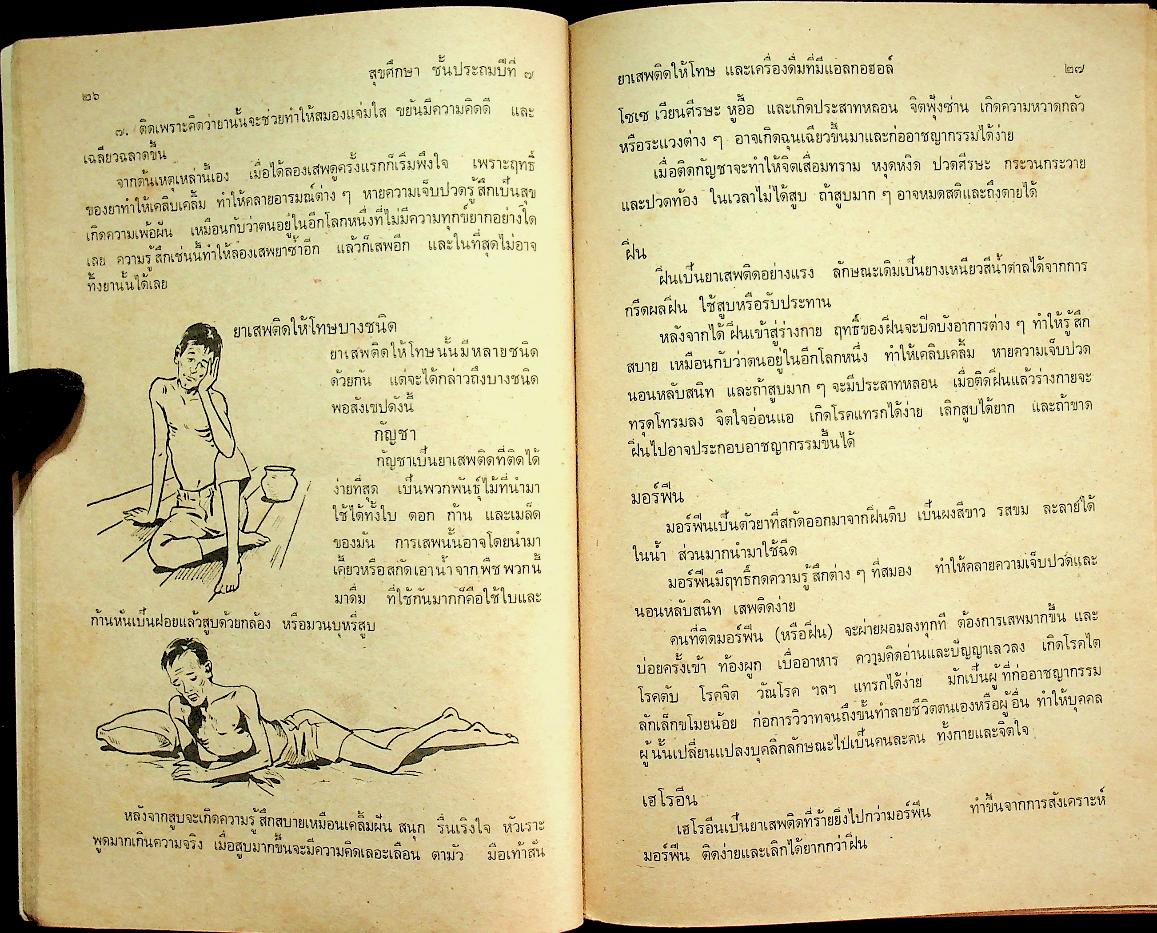 สุขศึกษา ชั้นประถมปีที่ ๗
๒๖
๗. ติดเพราะคิดว่ายานั้นจะช่วยทำให้สมองแจ่มใส ขยันมีความคิดดี และ
เฉลียวฉลาดขึ้น
จากต้นเหตุเหล่านี้เอง เมื่อได้ลองเสพดูครั้งแรกก็เริ่มพึงใจ เพราะฤทธิ์
ของยาทำให้เคลิบเคลิ้ม ทำให้คลายอารมณ์ต่าง ๆ หายความเจ็บปวดรู้สึกเป็นสุข
เกิดความเพ้อฝัน เหมือนกับว่าตนอยู่ในอีกโลกหนึ่งที่ไม่มีความทุกข์ยากอย่างใด
เลย ความรู้สึกเช่นนี้ทำให้ลองเสพยาซ้ำอีก แล้วก็เสพอีก และในที่สุดไม่อาจ
ทิ้งยานั้นได้เลย
ยาเสพติดให้โทษบางชนิด
ยาเสพติดให้โทษนั้นมีหลายชนิด
ด้วยกัน แต่จะได้กล่าวถึงบางชนิด
พอสังเขปดังนี้
กัญชา
กัญชาเป็นยาเสพติดที่ติดได้
ง่ายที่สุด เป็นพวกพันธุ์ไม้ที่นำมา
ใช้ได้ทั้งใบ ดอก ก้าน และเมล็ด
ของมัน การเสพนั้นอาจโดยนำมา
เคี้ยวหรือสกัดเอาน้ำจากพืชพวกนี้
มาดื่ม ที่ใช้กันมากก็คือใช้ใบและ
ก้านหั่นเป็นฝอยแล้วสูบด้วยกล้อง หรือมวนบุหรี่สูบ
หลังจากสูบจะเกิดความรู้สึกสบายเหมือนเคลิ้มฝัน สนุก รื่นเริงใจ หัวเราะ
พูดมากเกินความจริง เมื่อสูบมากขึ้นจะมีความคิดเลอะเลือน ตามัว มือเท้าสั่น
ยาเสพติดให้โทษ และเครื่องดื่มที่มีแอลกอฮอล์
๒๗
โซเซ เวียนศีรษะ หูอื้อ และเกิดประสาทหลอน จิตฟุ้งซ่าน เกิดความหวาดกลัว
หรือระแวงต่าง ๆ อาจเกิดฉุนเฉียวขึ้นมาและก่ออาชญากรรมได้ง่าย
เมื่อติดกัญชาจะทำให้จิตเสื่อมทราม หงุดหงิด ปวดศีรษะ กระวนกระวาย
และปวดท้อง ในเวลาไม่ได้สูบ ถ้าสูบมาก ๆ อาจหมดสติและถึงตายได้
ฝิ่น
ฝิ่นเป็นยาเสพติดอย่างแรง ลักษณะเดิมเป็นยางเหนียวสีน้ำตาลได้จากการ
กรีดผลฝิ่น ใช้สูบหรือรับประทาน
หลังจากได้ฝิ่นเข้าสู่ร่างกาย ฤทธิ์ของฝิ่นจะปิดบังอาการต่าง ๆ ทำให้รู้สึก
สบาย เหมือนกับว่าตนอยู่ในอีกโลกหนึ่ง ทำให้เคลิบเคลิ้ม หายความเจ็บปวด
นอนหลับสนิท และถ้าสูบมาก ๆ จะมีประสาทหลอน เมื่อติดฝิ่นแล้วร่างกายจะ
ทรุดโทรมลง จิตใจอ่อนแอ เกิดโรคแทรกได้ง่าย เลิกสูบได้ยาก และถ้าขาด
ฝิ่นไปอาจประกอบอาชญากรรมขึ้นได้
มอร์ฟีน
มอร์ฟีนเป็นตัวยาที่สกัดออกมาจากฝิ่นดิบ เป็นผงสีขาว รสขม ละลายได้
ในน้ำ ส่วนมากนำมาใช้ฉีด
มอร์ฟีนมีฤทธิ์กดความรู้สึกต่าง ๆ ที่สมอง ทำให้คลายความเจ็บปวดและ
นอนหลับสนิท เสพติดง่าย
คนที่ติดมอร์ฟีน (หรือฝิ่น) จะผ่ายผอมลงทุกที ต้องการเสพมากขึ้น และ
บ่อยครั้งเข้า ท้องผูก เบื่ออาหาร ความคิดอ่านและปัญญาเลวลง เกิดโรคไต
โรคตับ โรคจิต วัณโรค ฯลฯ แทรกได้ง่าย มักเป็นผู้ที่ก่ออาชญากรรม
ลักเล็กขโมยน้อย ก่อการวิวาทจนถึงขั้นทำลายชีวิตตนเองหรือผู้อื่น ทำให้บุคคล
ผู้นั้นเปลี่ยนแปลงบุคลิกลักษณะไปเป็นคนละคน ทั้งกายและจิตใจ
เฮโรอีน
เฮโรอีนเป็นยาเสพติดที่ร้ายยิ่งไปกว่ามอร์ฟีน ทำขึ้นจากการสังเคราะห์
มอร์ฟีน ติดง่ายและเลิกได้ยากกว่าฝิ่น